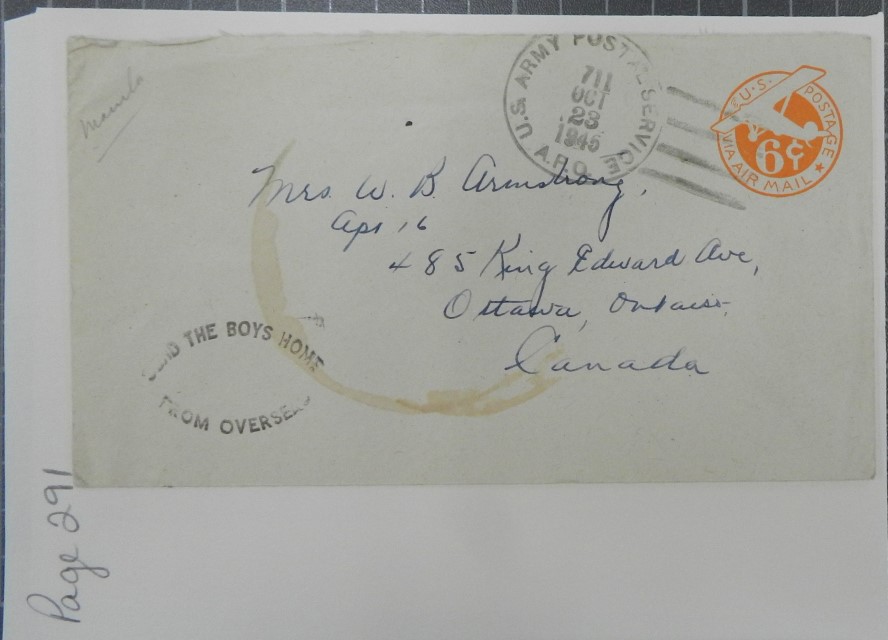 Manila
U.S. ARMY POSTAL SERVICE
711
OCT
23
1945
A.P.O.
U.S. POSTAGE
6¢
VIA AIR MAIL
Mrs. W. B. Armstrong,
Apt 16
485 King Edward Ave,
Ottawa, Ontario.
Canada
SEND THE BOYS HOME
FROM OVERSEAS
Page 291